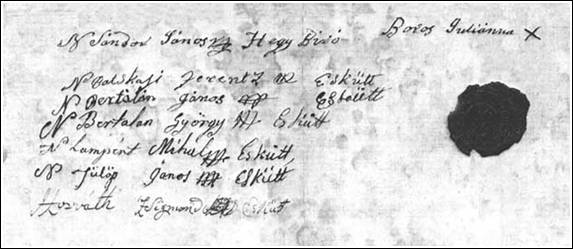 N Sándor Jánosz Hegy Biró Boros Juliánna X
N Palikasi Ferentz Eskütt
N Bertalan János Esküett
N Bertalan György Eskütt
N Lampért Mihál Eskütt
N Fülöp János Eskütt
Horváth Zsigmond Esküt